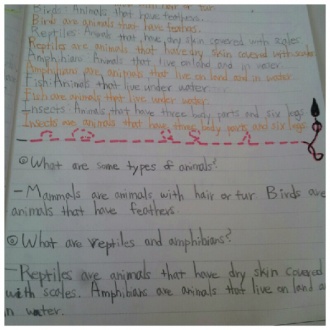 Birds: Animals that have feathers.
Birds are animals that have feathers.
Reptiles Animals that have dry skin covered with scales
Reptiles are animals that have dry skin covered with scales
Amphibians Animals that live on land and in water
Amphibians are animals that live on land and in water
Fish: Animals that live under water
Fish are animals that live under water
Insects Animals that have three body parts and six legs
Insects are animals that have three body parts and six legs
①What are some types of animals?
-Mammals are animals with hair or fur Birds are
animals that have feathers.
②What are reptiles and amphibians?
-Reptiles are animals that have dry skin covered
with scales. Amphibians are animals that live on land a
in water.